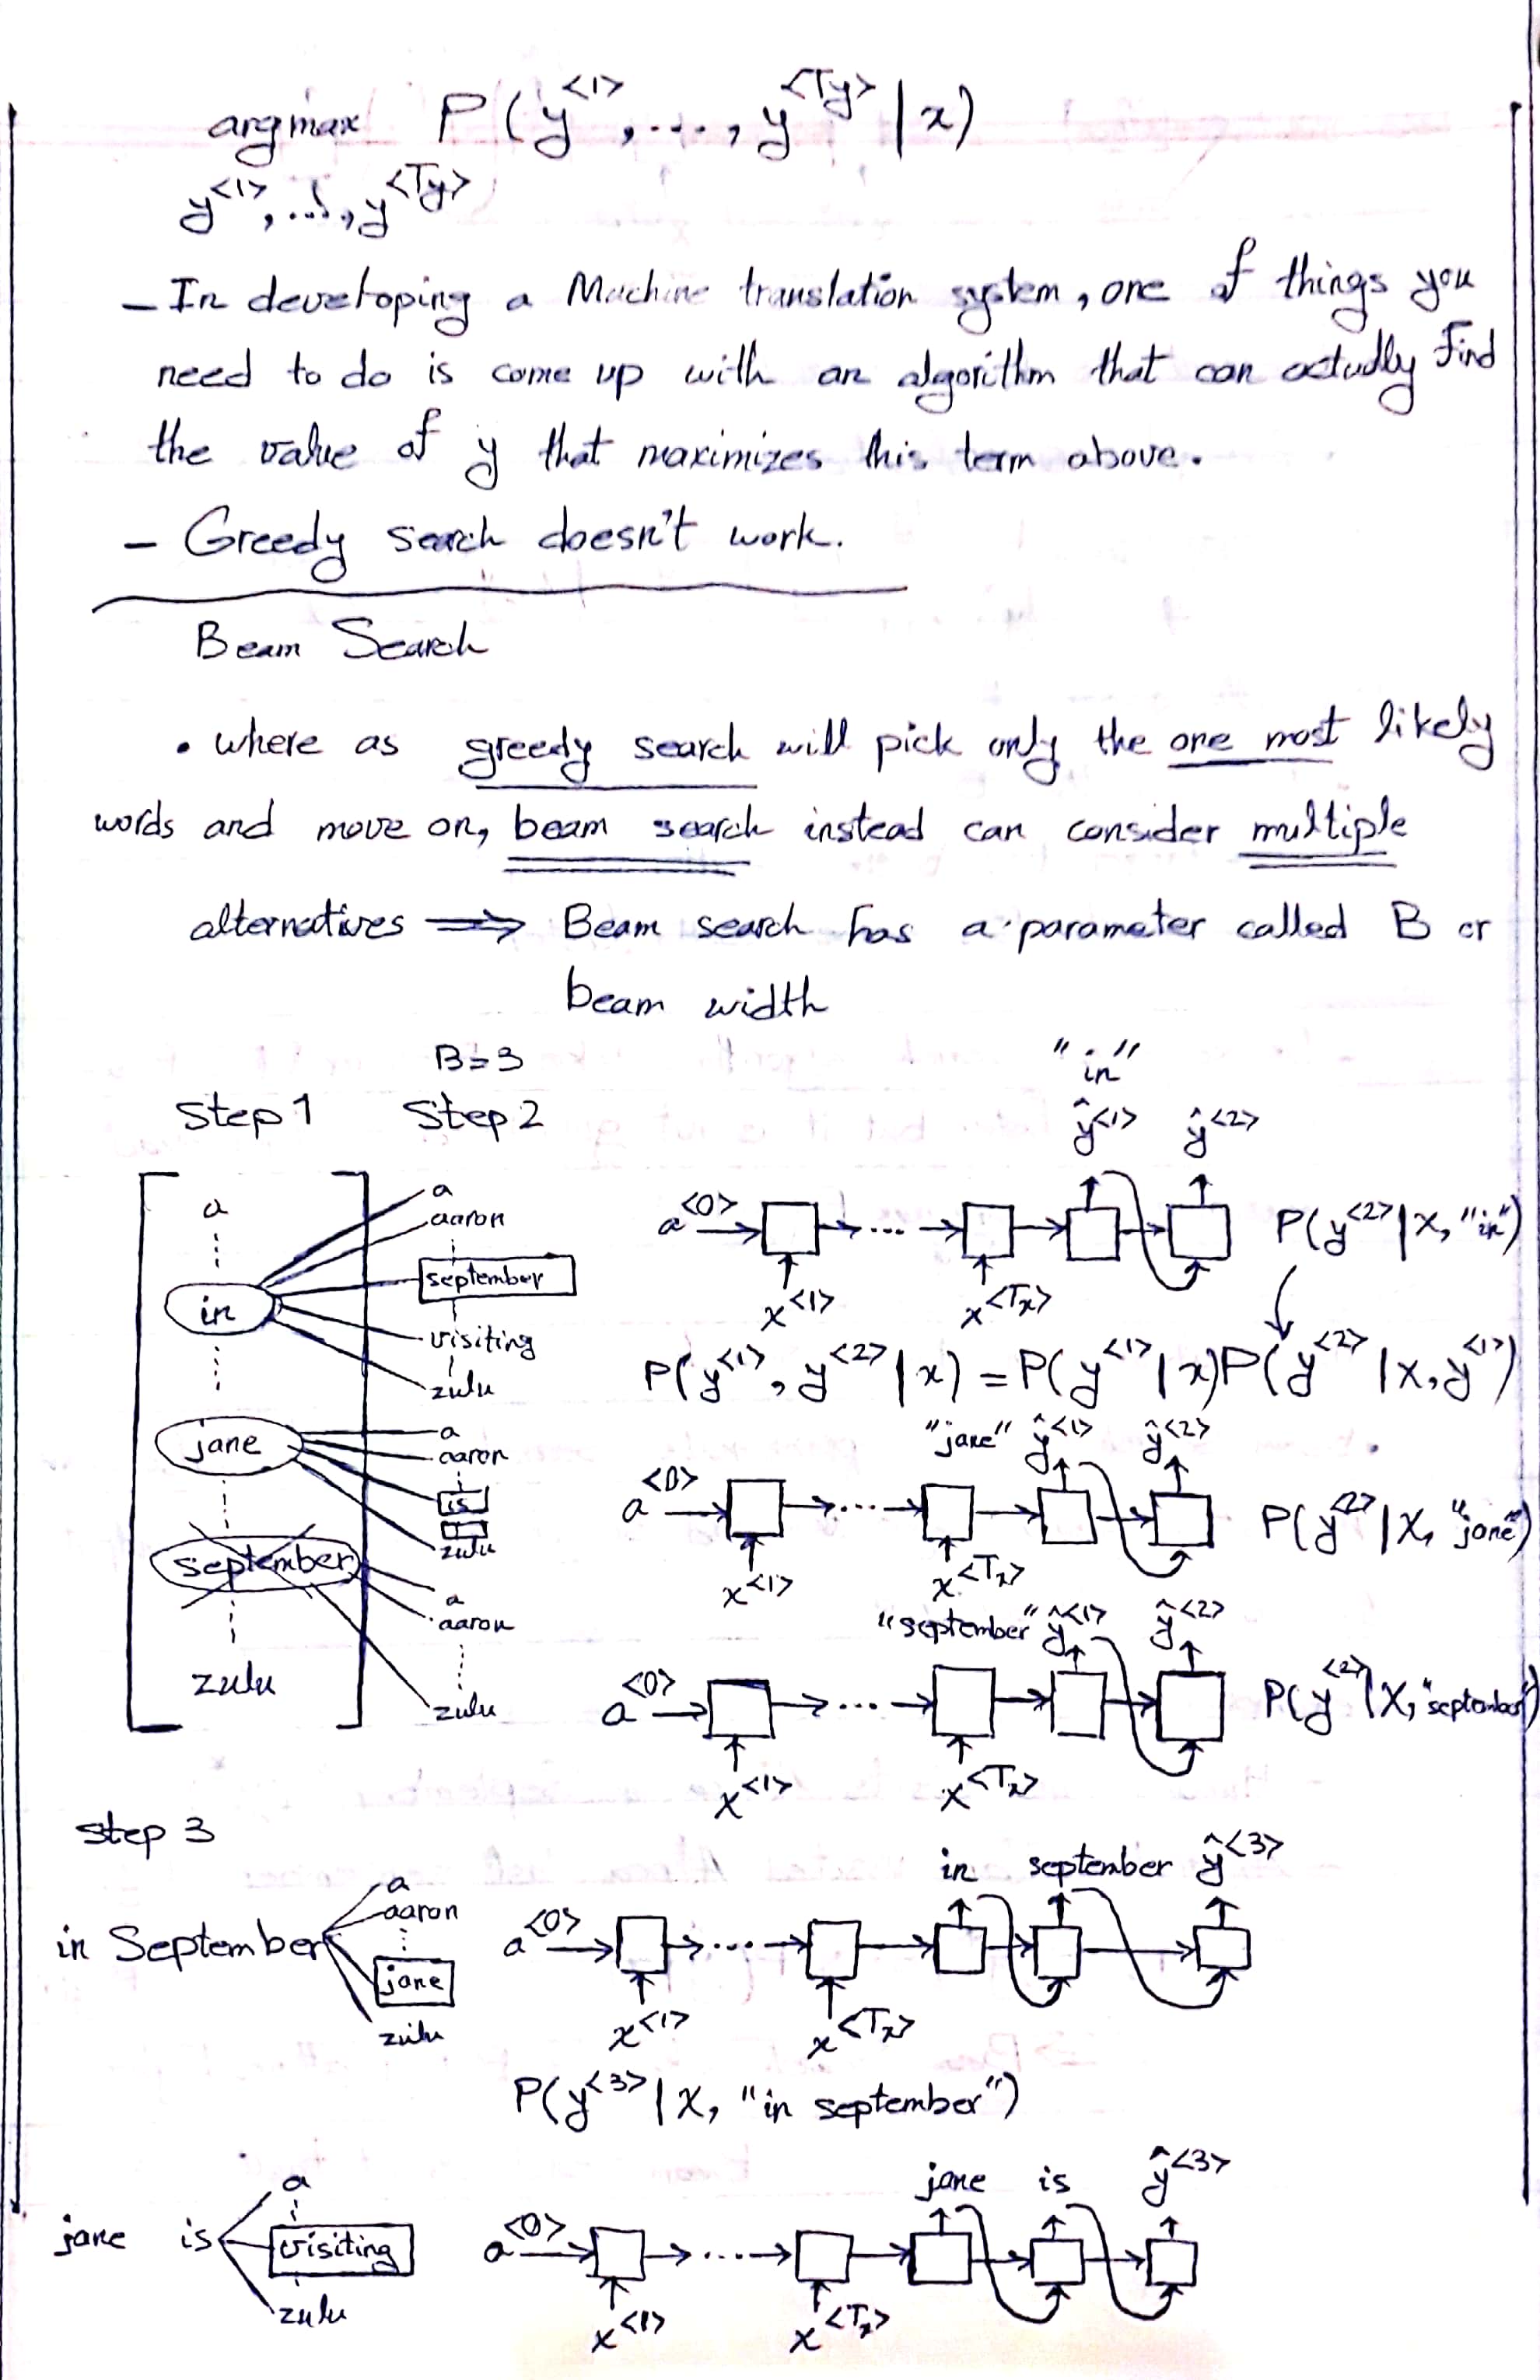 argmax P(y<1>,...,y<Ty>|x)
y<1>,...,y<Ty>
- In developing a Machine translation system, one of things you
need to do is come up with an algorithm that can actually find
the value of y that maximizes this term above.
- Greedy search doesn't work.
Beam Search
• where as greedy search will pick only the one most likely
words and move on, beam search instead can consider multiple
alternatives ⟹ Beam search has a parameter called B or
beam width
B=3
Step 1 Step 2
a
in
jane
september
zulu
a
aaron
september
visiting
zulu
a
aaron
is
zulu
a
aaron
zulu
"in"
ŷ<1> ŷ<2>
a<0> → ... → P(y<2>|x, "in")
x<1> x<Tx>
P(y<1>, y<2>|x) = P(y<1>|x)P(y<2>|x,y<1>)
"jane" ŷ<1> ŷ<2>
a<0> → ... → P(y<2>|x, "jane")
x<1> x<Tx>
"september" ŷ<1> ŷ<2>
a<0> → ... → P(y<2>|x, "september")
x<1> x<Tx>
step 3
in September
a
aaron
jane
zulu
in september ŷ<3>
a<0> → ... →
x<1> x<Tx>
P(y<3>|x, "in september")
jane is
a
visiting
zulu
jane is ŷ<3>
a<0> → ... →
x<1> x<Tx>